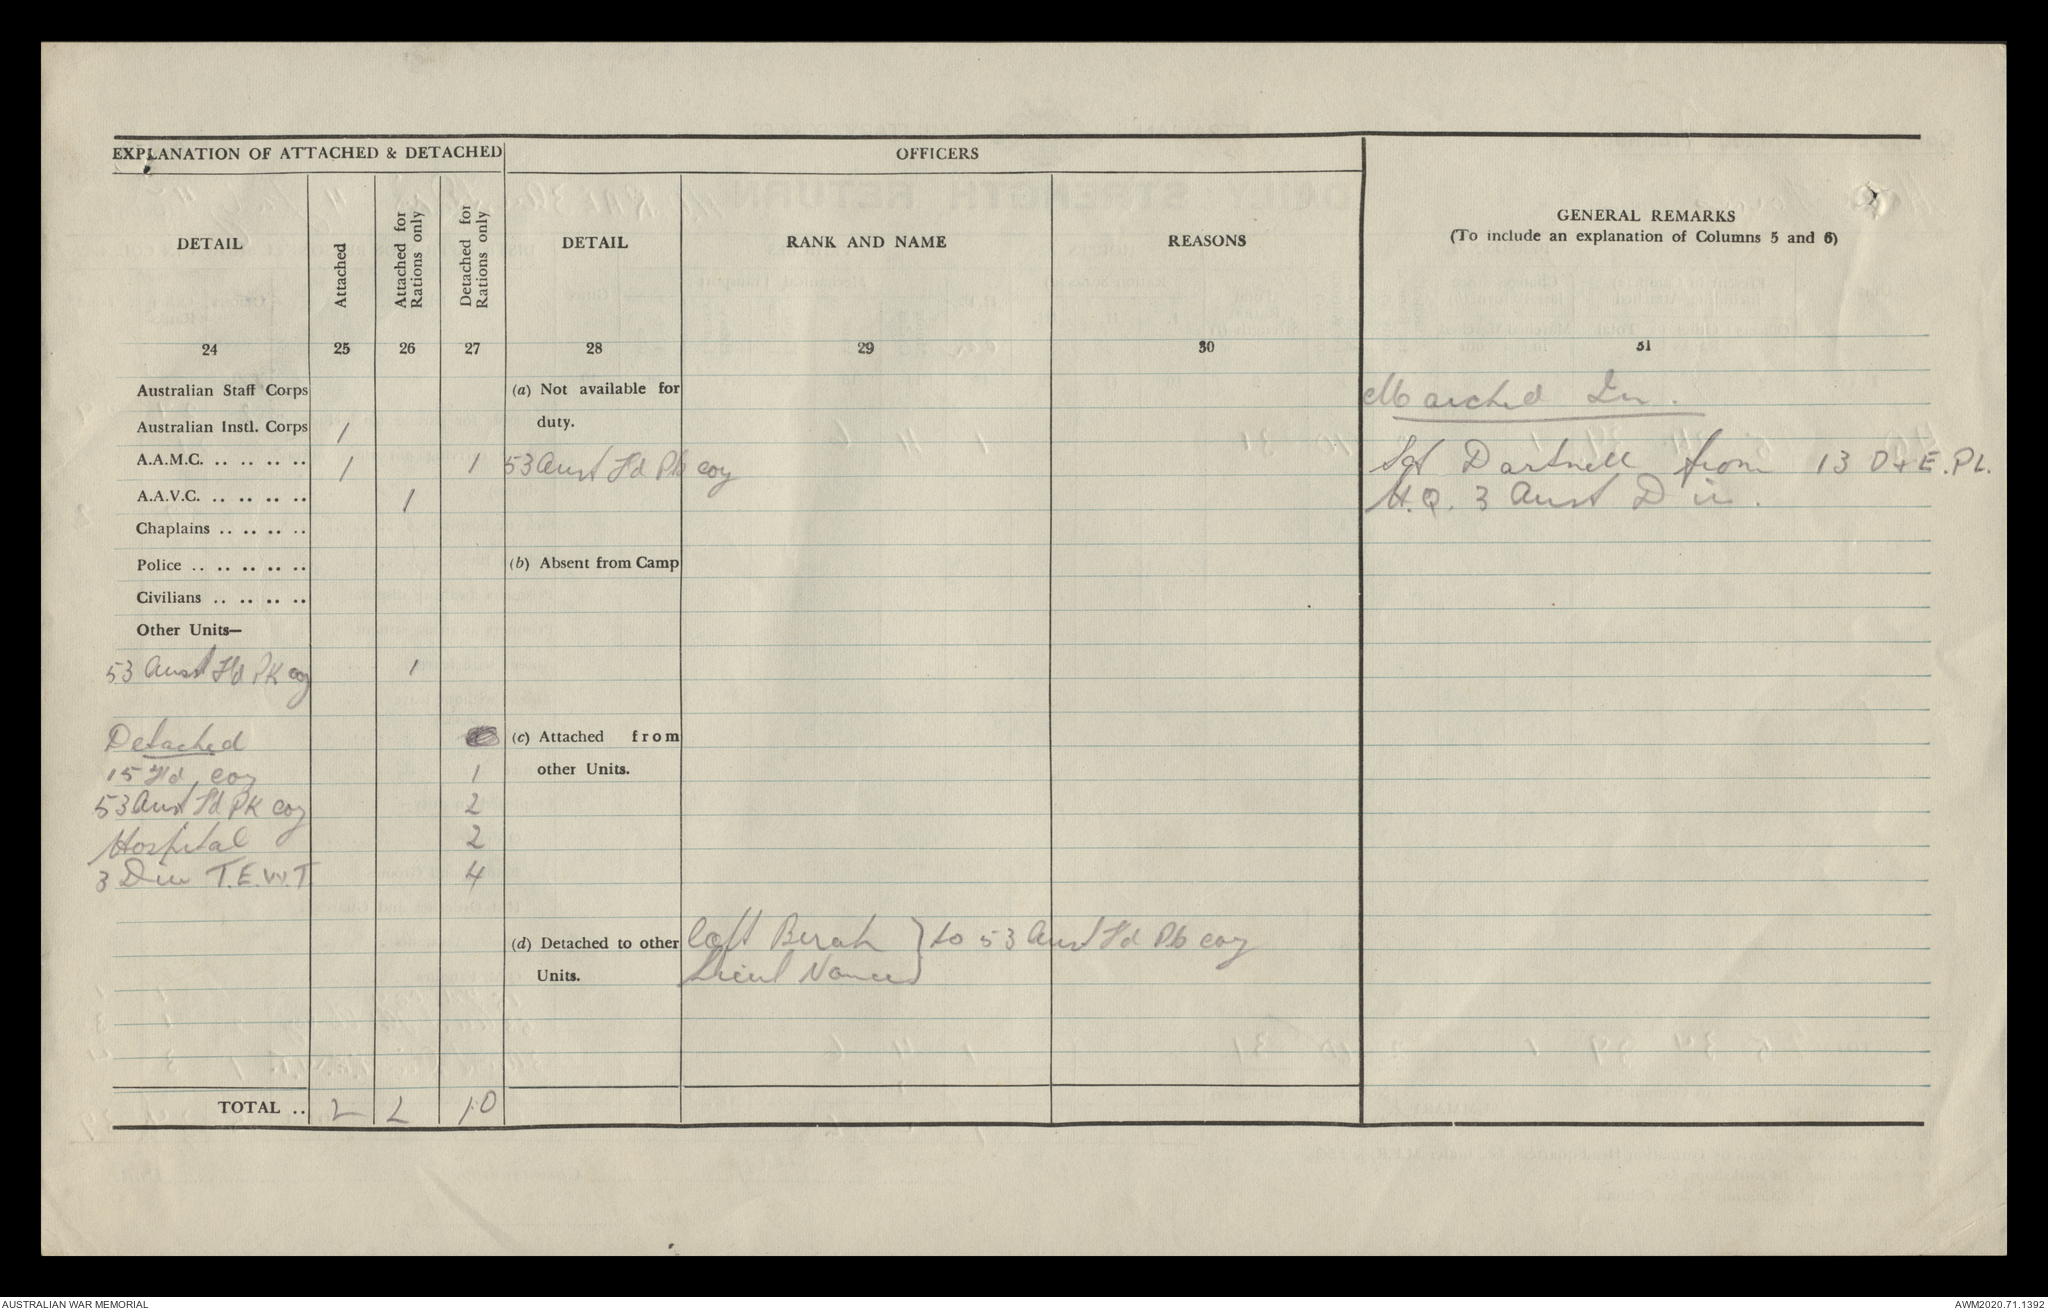 EXPLANATION OF ATTACHED & DETACHED
OFFICERS
GENERAL REMARKS
(To include an explanation of Columns 5 and 6)
DETAIL
Attached
Attached for Rations only
Detached for Rations only
DETAIL
RANK AND NAME
REASONS
24 25 26 27 28 29 30 31
Australian Staff Corps
(a) Not available for
duty.
Marched In.
Australian Instl. Corps 1
A.A.M.C. .. .. .. .. 1 1 53 Aust Fd Pk coy
Sgt Dartnell from 13 D & E. PL.
H.Q. 3 Aust Div.
A.A.V.C. .. .. .. .. 1
Chaplains .. .. .. ..
Police .. .. .. .. ..
(b) Absent from Camp
Civilians .. .. .. ..
Other Units—
53 Aust Fd PK coy 1
Detached
(c) Attached from
other Units.
15 Fd coy 1
53 Aust Fd PK coy 2
Hospital 2
3 Div T.E.W.T 4
(d) Detached to other
Units.
Capt
Lieut
} to 53 Aust Fd Pk coy
TOTAL .. 2 2 10
AUSTRALIAN WAR MEMORIAL
AWM2020.71.1392